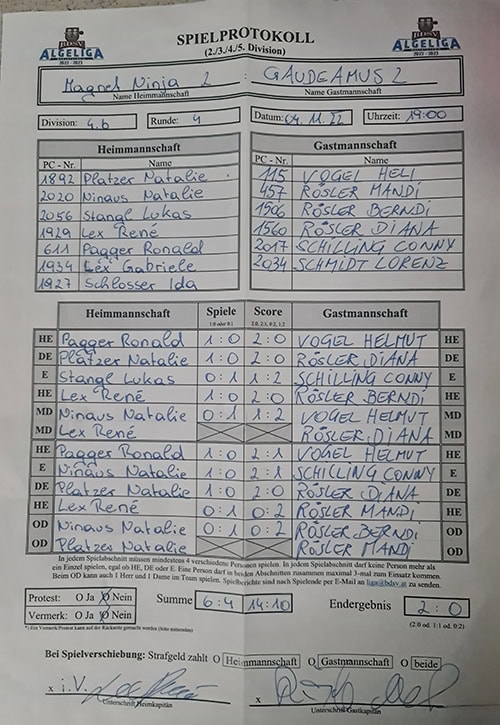 BDSV
ALGELIGA
2022-2023
SPIELPROTOKOLL
(2./3./4./5. Division)
BDSV
ALGELIGA
2022-2023
Magnet Ninja 2 : GAUDEAMUS 2
Name Heimmannschaft Name Gastmannschaft
Division: 4.b Runde: 4 Datum: 04.11.22 Uhrzeit: 19:00
Heimmannschaft Gastmannschaft
PC - Nr. Name PC - Nr. Name
1892 Platzer Natalie 115 VOGEL HELI
2020 Ninaus Natalie 457 RÖSLER MANDI
2056 Stangl Lukas 1506 RÖSLER BERNDI
1929 Lex René 1560 RÖSLER DIANA
611 Pagger Ronald 2017 SCHILLING CONNY
1934 Lex Gabriele 2034 SCHMIDT LORENZ
1927 Schlosser Ida
Heimmannschaft Spiele Score Gastmannschaft
1:0 oder 0:1 2:0, 2:1, 0:2, 1:2
HE Pagger Ronald 1:0 2:0 VOGEL HELMUT HE
DE Platzer Natalie 1:0 2:0 RÖSLER DIANA DE
E Stangl Lukas 0:1 1:2 SCHILLING CONNY E
HE Lex René 1:0 2:0 RÖSLER BERNDI HE
MD Ninaus Natalie 0:1 1:2 VOGEL HELMUT MD
MD Lex René RÖSLER DIANA MD
HE Pagger Ronald 1:0 2:1 VOGEL HELMUT HE
E Ninaus Natalie 1:0 2:1 SCHILLING CONNY E
DE Platzer Natalie 1:0 2:0 RÖSLER DIANA DE
HE Lex René 0:1 0:2 RÖSLER MANDI HE
OD Ninaus Natalie 0:1 0:2 RÖSLER BERNDI OD
OD Platzer Natalie RÖSLER MANDI OD
In jedem Spielabschnitt müssen mindestens 4 verschiedene Personen spielen. In jedem Spielabschnitt darf keine Person mehr als
ein Einzel spielen, egal ob HE, DE oder E. Eine Person darf in beiden Abschnitten zusammen maximal 3-mal zum Einsatz kommen.
Beim OD kann auch 1 Herr und 1 Dame im Team spielen. Spielberichte sind nach Spielende per E-Mail an liga@bdsv.at zu senden.
Protest: O Ja O Nein Summe 6:4 14:10 Endergebnis 2:0
Vermerk: *) O Ja O Nein (2:0 od. 1:1 od. 0:2)
*) Ein Vermerk/Protest kann auf der Rückseite gemacht werden (bitte ankreuzen)
Bei Spielverschiebung: Strafgeld zahlt O Heimmannschaft O Gastmannschaft O beide
x i.V. x
Unterschrift Heimkapitän Unterschrift Gastkapitän